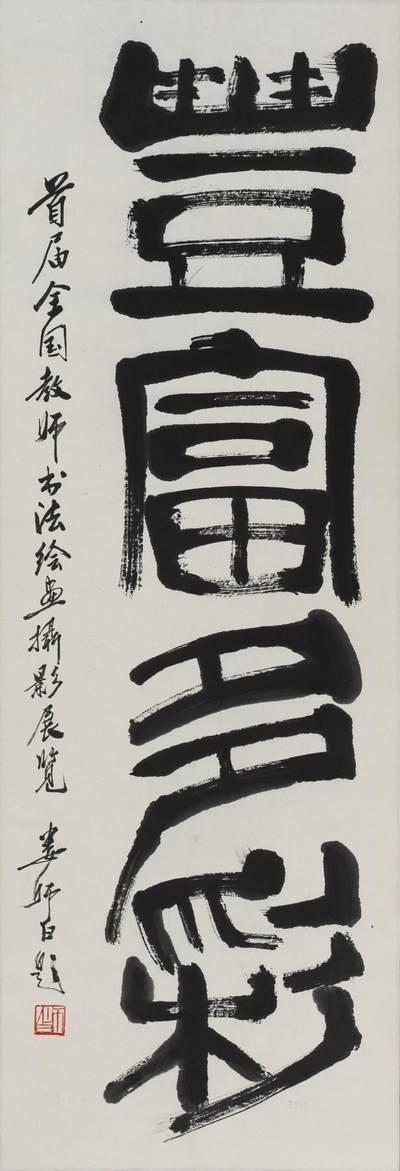 豐富多彩
首届全国教师书法绘画攝影展覽
娄师白题